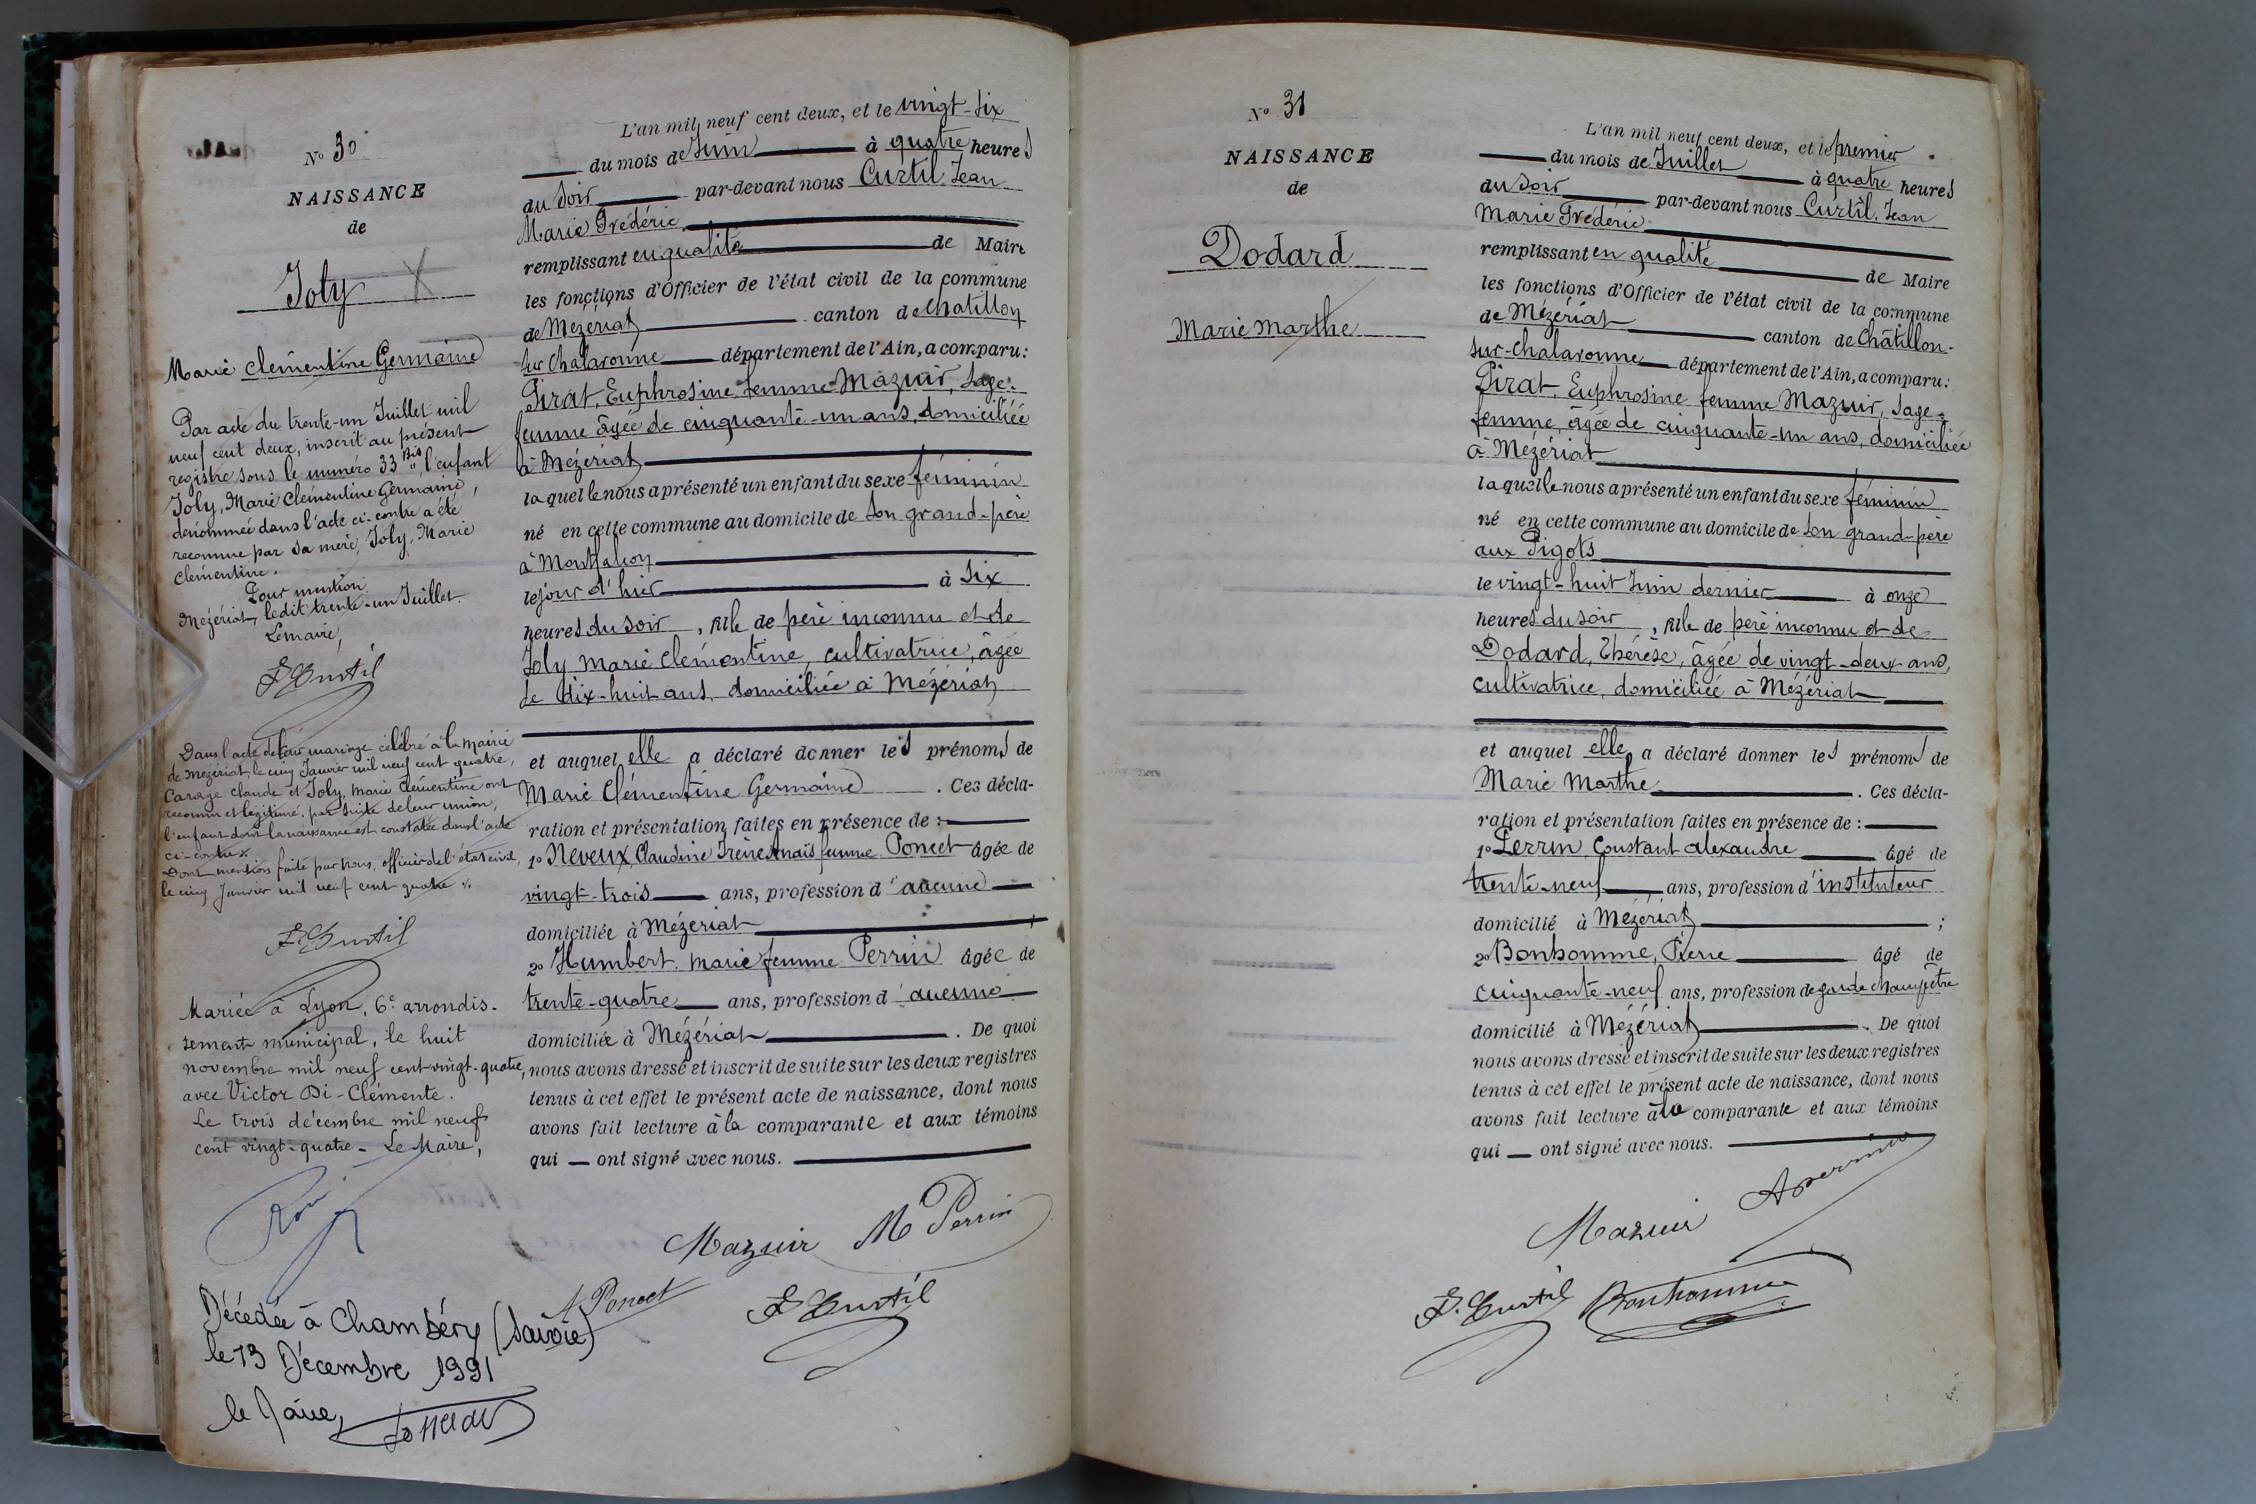 Nº 30
NAISSANCE
de
Joly
Marie Clémentine Germaine
Par acte du trente-un Juillet mil
neuf cent deux, inscrit au présent
registre sous le numéro 33 Bis, l'enfant
Joly, Marie Clémentine Germaine,
dénommée dans l'acte ci-contre a été
reconnue par sa mère, Joly, Marie
Clémentine.
Pour mention
Mézériat, le dit trente-un Juillet.
Le maire,
F. Curtil
Dans l'acte de leur mariage célébré à la mairie
de Mézériat, le cinq Janvier mil neuf cent quatre,
Claude et Joly, Marie Clémentine ont
reconnu et légitimé, par suite de leur union,
l'enfant dont la naissance est constatée dans l'acte
ci-contre.
Dont mention faite par nous, officier de l'état civil,
le cinq Janvier mil neuf cent quatre.
F. Curtil
Mariée à Lyon, 6e arrondis-
sement municipal, le huit
novembre mil neuf cent vingt-quatre,
avec Victor Di-Clémente.
Le trois décembre mil neuf
cent vingt-quatre - Le Maire,
Décédée à Chambéry (Savoie)
le 13 Décembre 1991
le Maire,
L'an mil neuf cent deux, et le vingt-six
du mois de Juin à quatre heures
du soir par-devant nous Curtil, Jean
Marie Frédéric
remplissant en qualité de Maire
les fonctions d'Officier de l'état civil de la commune
de Mézériat canton de Chatillon
sur Chalaronne département de l'Ain, a comparu:
Pirat, Euphrosine femme Mazuir, sage-
femme âgée de cinquante-un ans, domiciliée
à Mézériat
laquelle nous a présenté un enfant du sexe féminin
né en cette commune au domicile de son grand-père
à Montfalcon
le jour d'hier à six
heures du soir, fille de père inconnu et de
Joly Marie Clémentine, cultivatrice, âgée
de dix-huit ans, domiciliée à Mézériat
et auquel elle a déclaré donner les prénoms de
Marie Clémentine Germaine. Ces décla-
ration et présentation faites en présence de :
1º Neveux, Claudine Irène Anaïs femme Poncet âgée de
vingt-trois ans, profession d'aucune
domiciliée à Mézériat ;
2º Humbert, Marie femme Perrin âgée de
trente-quatre ans, profession d'aucune
domiciliée à Mézériat. De quoi
nous avons dressé et inscrit de suite sur les deux registres
tenus à cet effet le présent acte de naissance, dont nous
avons fait lecture à la comparante et aux témoins
qui — ont signé avec nous.
Mazuir M Perrin
A Poncet F Curtil
Nº 31
NAISSANCE
de
Dodard
Marie Marthe
L'an mil neuf cent deux, et le premier
du mois de Juillet à quatre heures
du soir par-devant nous Curtil, Jean
Marie Frédéric
remplissant en qualité de Maire
les fonctions d'Officier de l'état civil de la commune
de Mézériat canton de Châtillon-
sur-Chalaronne département de l'Ain, a comparu:
Pirat, Euphrosine femme Mazuir, sage-
femme, âgée de cinquante-un ans, domiciliée
à Mézériat
laquelle nous a présenté un enfant du sexe féminin
né en cette commune au domicile de son grand-père
aux Pigots
le vingt-huit Juin dernier à onze
heures du soir, fille de père inconnu et de
Dodard, Thérèse, âgée de vingt-deux ans,
cultivatrice, domiciliée à Mézériat
et auquel elle a déclaré donner les prénoms de
Marie Marthe. Ces décla-
ration et présentation faites en présence de :
1º Perrin, Constant Alexandre âgé de
trente-neuf ans, profession d'instituteur
domicilié à Mézériat ;
2º Bonhomme, Pierre âgé de
cinquante-neuf ans, profession de garde champêtre
domicilié à Mézériat. De quoi
nous avons dressé et inscrit de suite sur les deux registres
tenus à cet effet le présent acte de naissance, dont nous
avons fait lecture à la comparante et aux témoins
qui — ont signé avec nous.
Mazuir A Perrin
F. Curtil Bonhomme